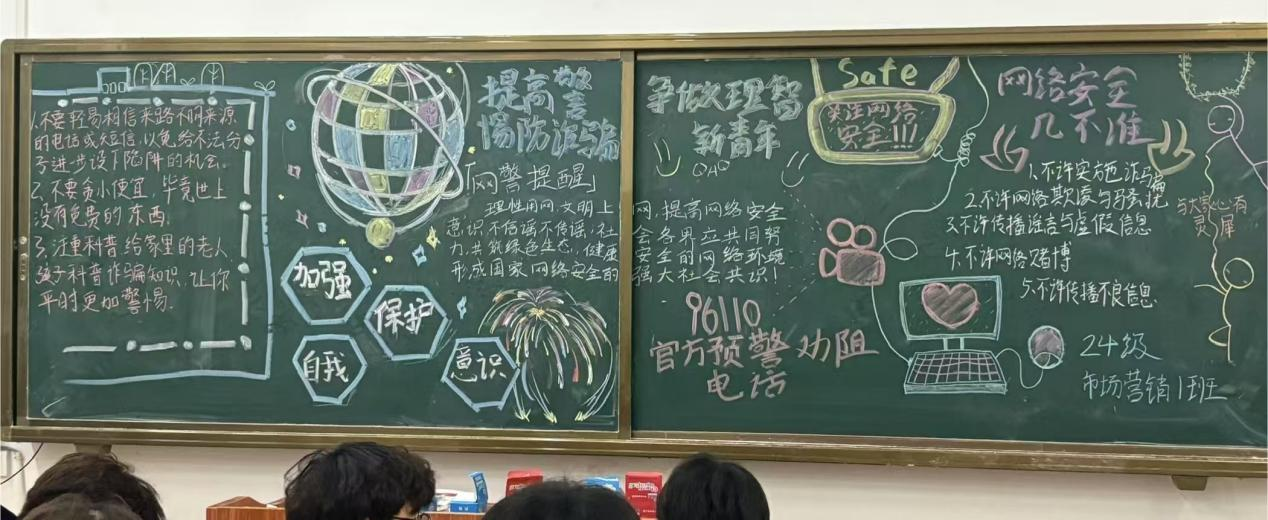 1.不要轻易相信来路不明来源
的电话或短信,以免给不法分
子进步设下陷阱的机会.
2.不要贪小便宜,毕竟世上
没有免费的东西.
3.注重科普给家里的老人
孩子科普诈骗知识,让你
平时更加警惕.
提高警
惕防诈骗
「网警提醒」
理性用网,文明上网,提高网络安全
意识,不信谣不传谣,社会各界应共同努
力,共筑绿色生态,健康安全的网络环境
形成国家网络安全的强大社会共识!
加强
保护
自我
意识
争做理智
新青年
QAQ
96110
官方预警劝阻
电话
Safe
关注网络
安全!!!
网络安全
几不准
1.不许实施诈骗
2.不许网络欺凌与骚扰
3.不许传播谣言与虚假信息
4.不许网络赌博
5.不许传播不良信息
与大家心有
灵犀
24级
市场营销1班